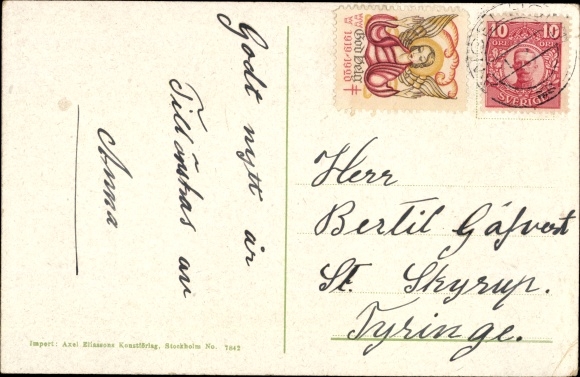 Godt nytt år
Tillönskas av
Anna
God Helg
1919-1920
10 10
ÖRE ÖRE
SVERIGE
Herr
Bertil Gåfvert
St. Skyrup.
Tyringe.
Import: Axel Eliassons Konstförlag, Stockholm No. 7642